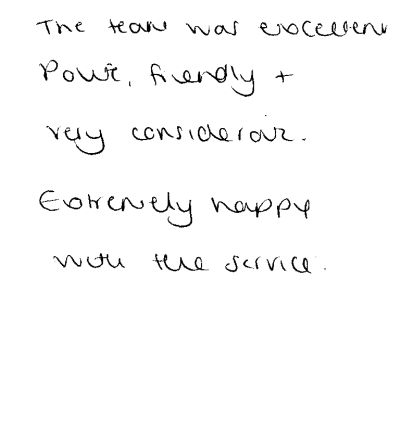 The team was excellent
Polite, friendly +
very considerate.
Extremely happy
with the service.